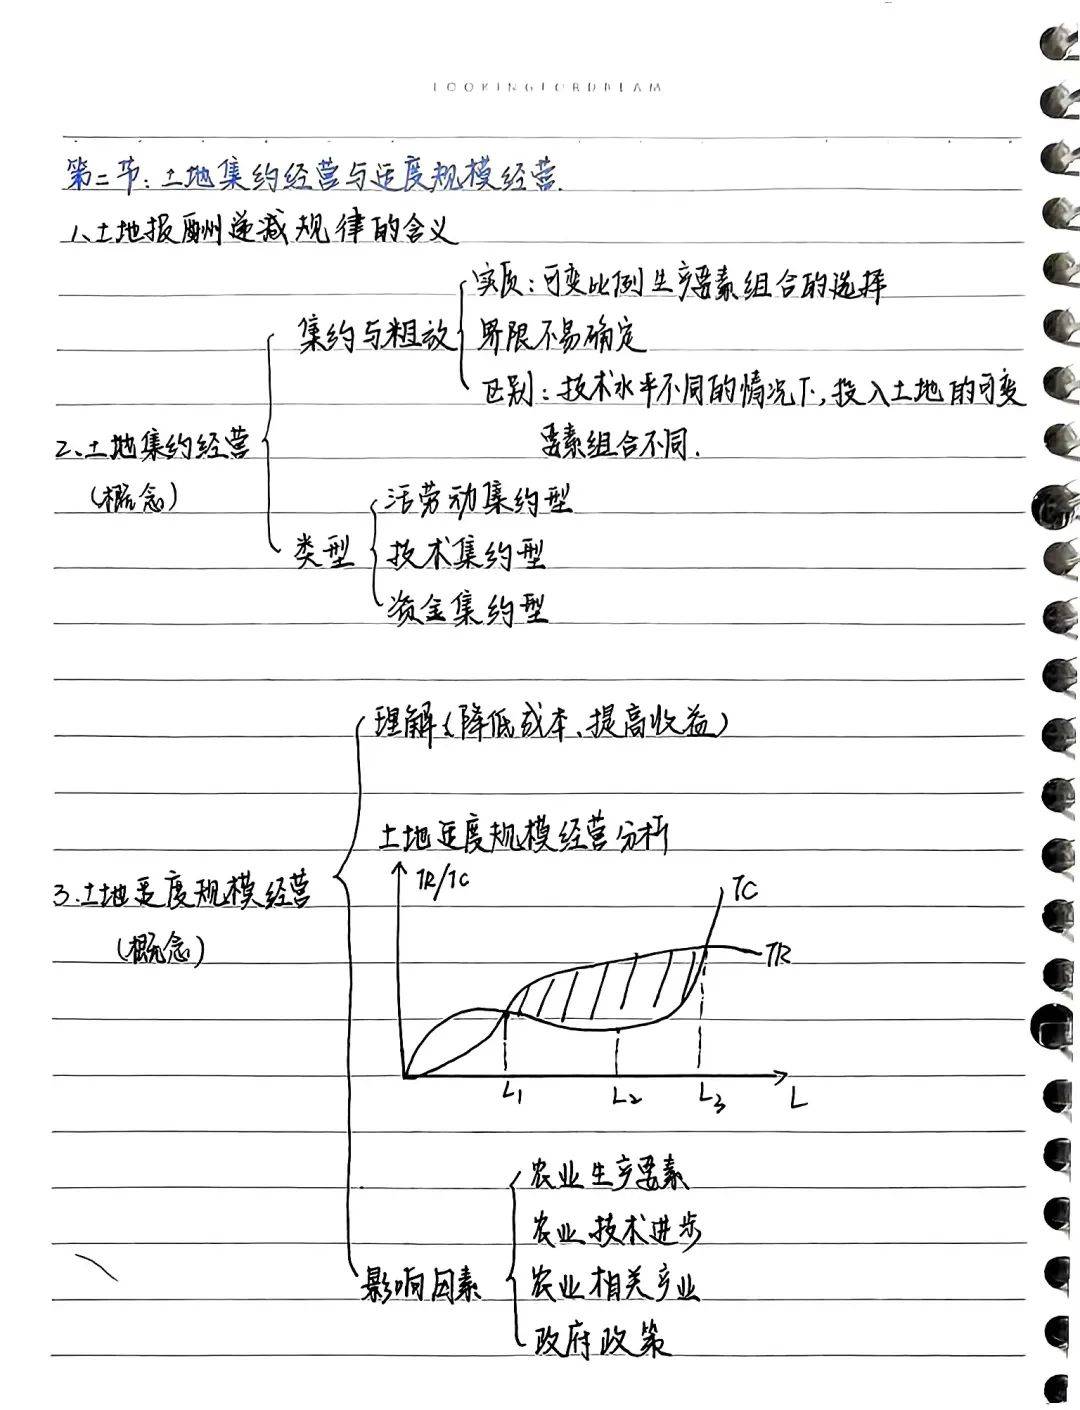 LOOKINGFORDREAM
第二节:土地集约经营与适度规模经营.
1、土地报酬递减规律的含义
实质:可变比例生产要素组合的选择
集约与粗放
界限不易确定
区别:技术水平不同的情况下,投入土地的可变
要素组合不同.
2、土地集约经营
(概念)
活劳动集约型
类型
技术集约型
资金集约型
理解(降低成本、提高收益)
土地适度规模经营分析
TR/TC
TC
3.土地适度规模经营
(概念)
TR
L1 L2 L3 L
农业生产要素
农业技术进步
影响因素
农业相关产业
政府政策